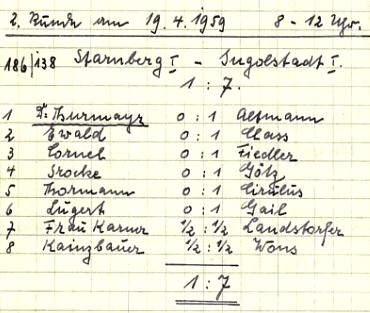 2. Runde am 19. 4. 1959 8 - 12 Uhr.
186/138 Starnberg I - Ingolstadt I.
1 : 7.
1 Dr. Thurmayr 0 : 1 Altmann
2 Ewald 0 : 1 Class
3 Cornel 0 : 1 Fiedler
4 Srocke 0 : 1 Götz
5 Thormann 0 : 1 Cirulus
6 Lugert 0 : 1 Gail
7 Frau Karner ½ : ½ Landstorfer
8 Kainzbauer ½ : ½ Wons
1 : 7